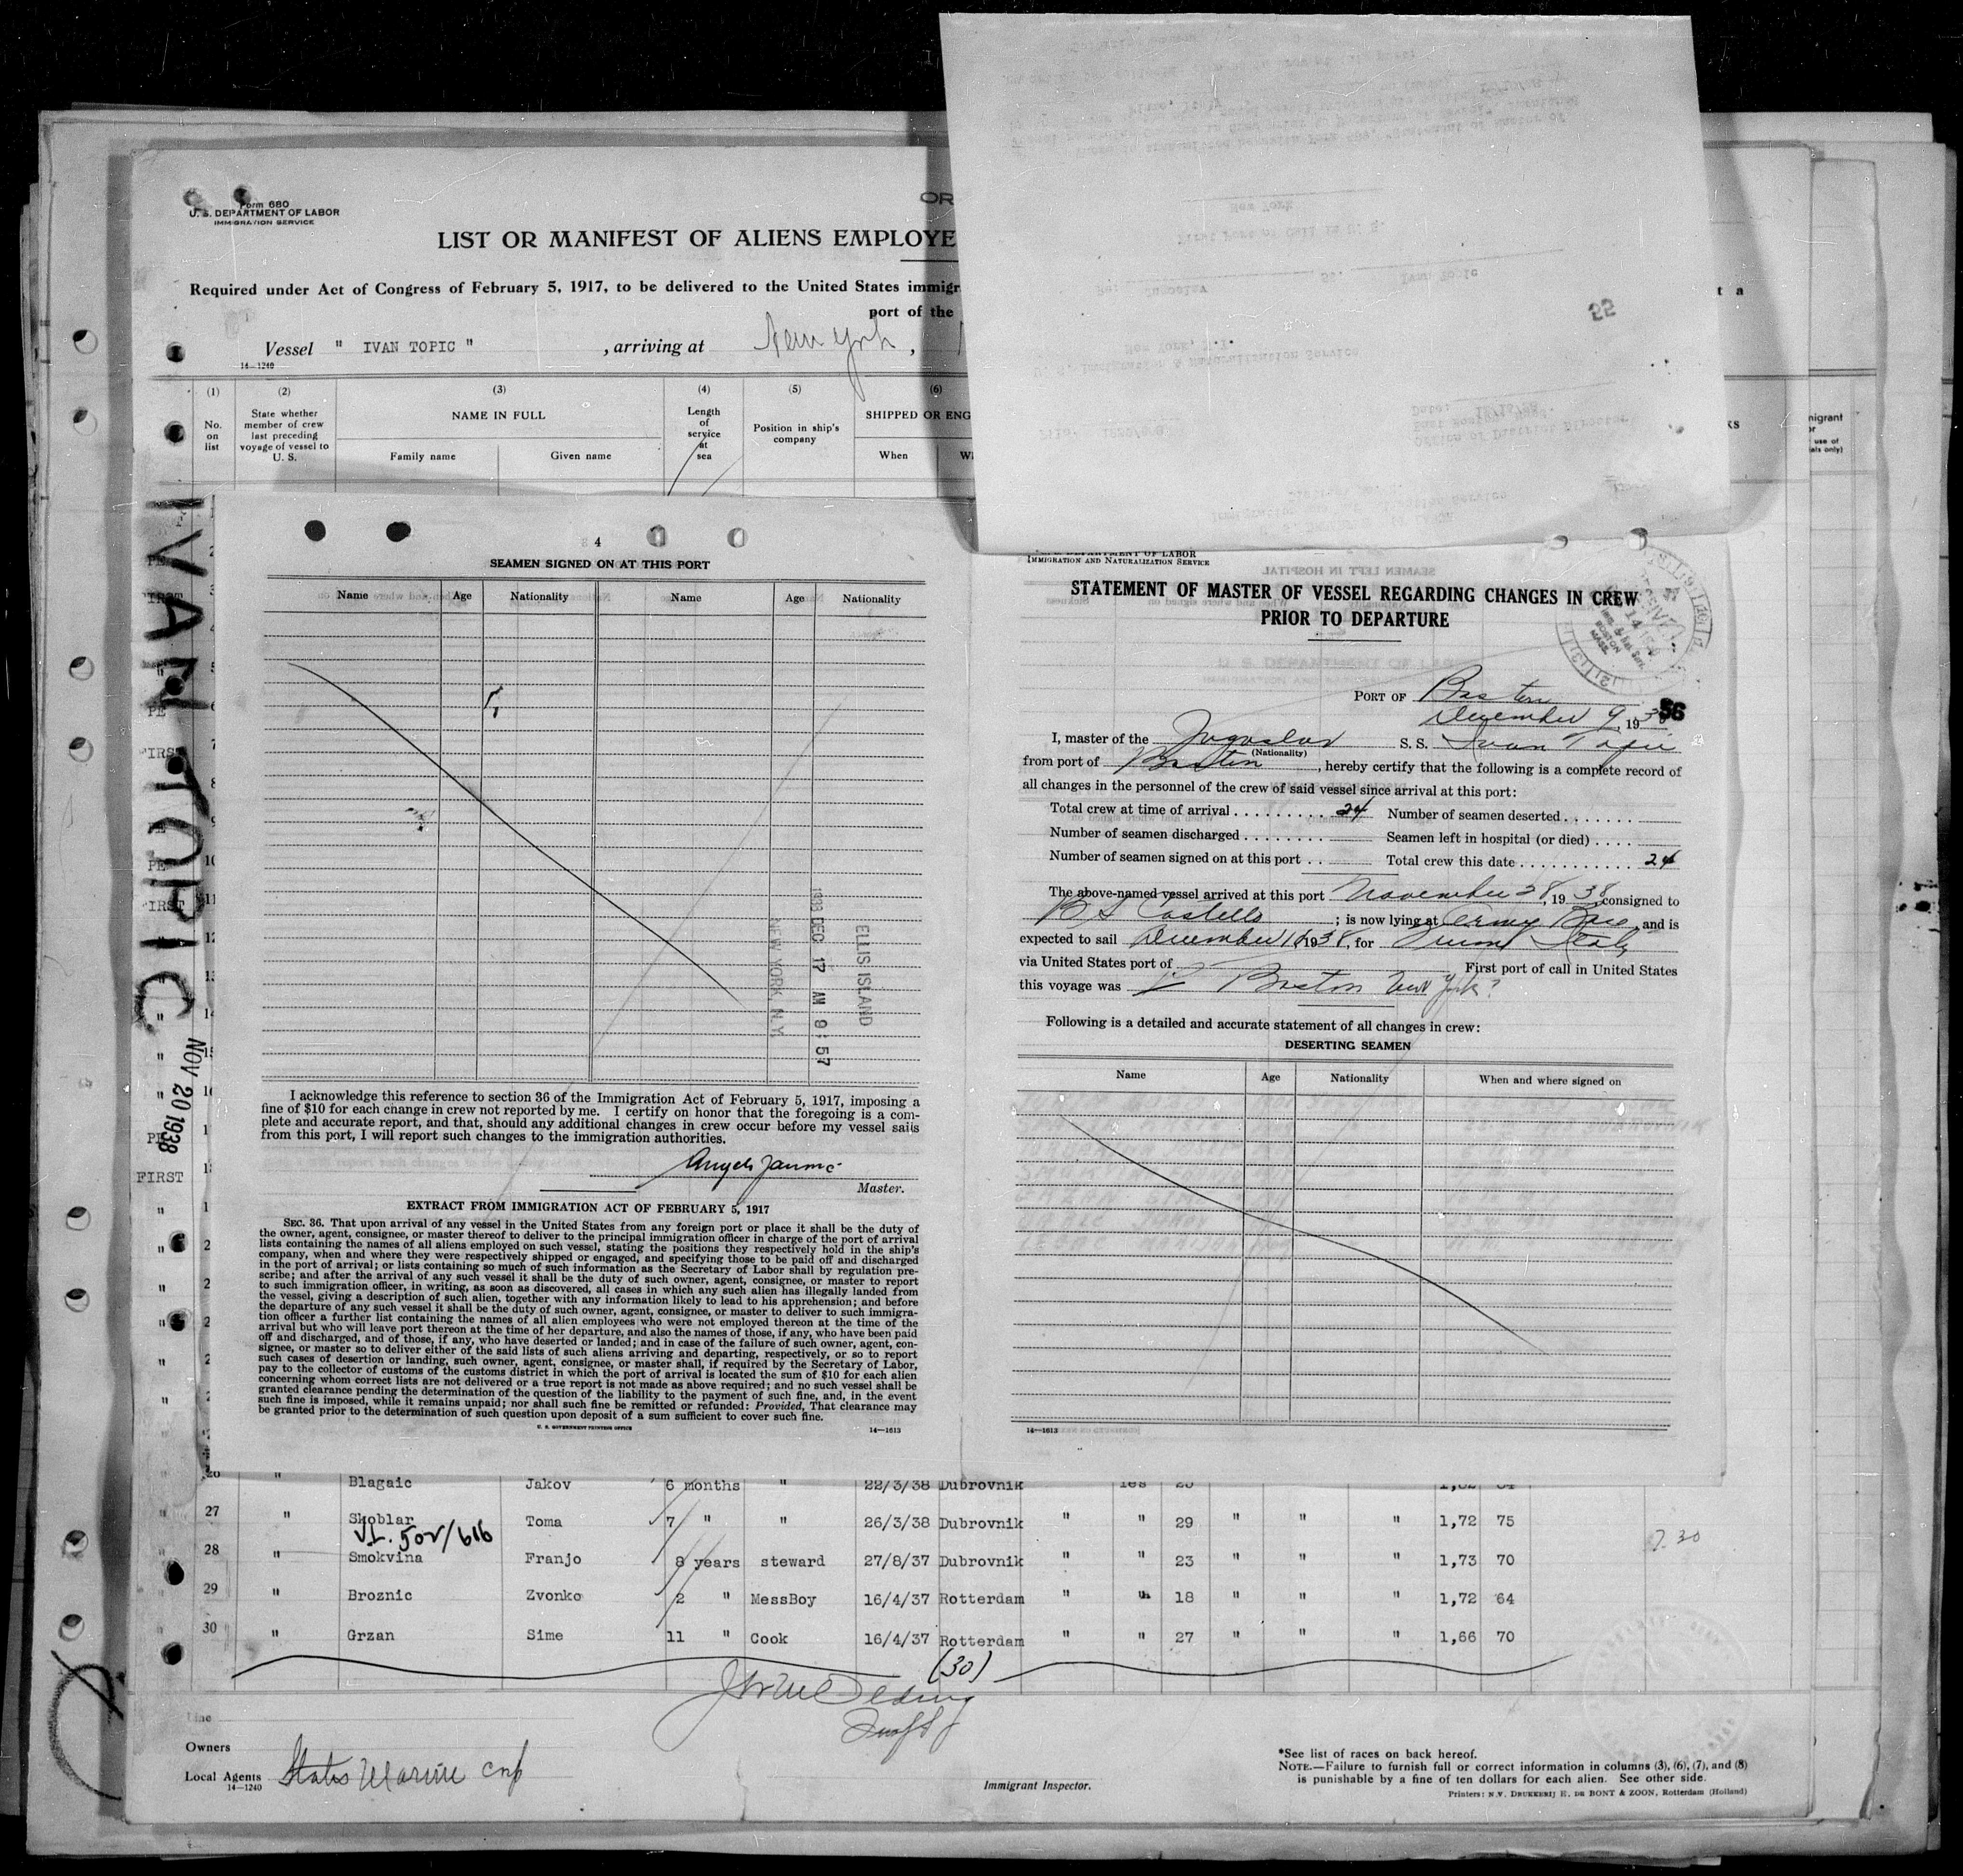 Form 680
U. S. DEPARTMENT OF LABOR
IMMIGRATION SERVICE
OR
LIST OR MANIFEST OF ALIENS EMPLOYE
Required under Act of Congress of February 5, 1917, to be delivered to the United States immigr
port of the
t a
Vessel " IVAN TOPIC " , arriving at New York ,
14—1240
(1) (2) (3) (4) (5) (6)
No. on list
State whether member of crew last preceding voyage of vessel to U. S.
NAME IN FULL
Family name Given name
Length of service at sea
Position in ship's company
SHIPPED OR ENG
When
IVAN TOPIC
NOV 20 1938
22
4
SEAMEN SIGNED ON AT THIS PORT
Name Age Nationality Name Age Nationality
1938 DEC 17 AM 9:57
ELLIS ISLAND
NEW YORK, N.Y.
I acknowledge this reference to section 36 of the Immigration Act of February 5, 1917, imposing a
fine of $10 for each change in crew not reported by me. I certify on honor that the foregoing is a com-
plete and accurate report, and that, should any additional changes in crew occur before my vessel sails
from this port, I will report such changes to the immigration authorities.
Master.
EXTRACT FROM IMMIGRATION ACT OF FEBRUARY 5, 1917
SEC. 36. That upon arrival of any vessel in the United States from any foreign port or place it shall be the duty of
the owner, agent, consignee, or master thereof to deliver to the principal immigration officer in charge of the port of arrival
lists containing the names of all aliens employed on such vessel, stating the positions they respectively hold in the ship's
company, when and where they were respectively shipped or engaged, and specifying those to be paid off and discharged
in the port of arrival; or lists containing so much of such information as the Secretary of Labor shall by regulation pre-
scribe; and after the arrival of any such vessel it shall be the duty of such owner, agent, consignee, or master to report
to such immigration officer, in writing, as soon as discovered, all cases in which any such alien has illegally landed from
the vessel, giving a description of such alien, together with any information likely to lead to his apprehension; and before
the departure of any such vessel it shall be the duty of such owner, agent, consignee, or master to deliver to such immigra-
tion officer a further list containing the names of all alien employees who were not employed thereon at the time of the
arrival but who will leave port thereon at the time of her departure, and also the names of those, if any, who have been paid
off and discharged, and of those, if any, who have deserted or landed; and in case of the failure of such owner, agent, con-
signee, or master so to deliver either of the said lists of such aliens arriving and departing, respectively, or so to report
such cases of desertion or landing, such owner, agent, consignee, or master shall, if required by the Secretary of Labor,
pay to the collector of customs of the customs district in which the port of arrival is located the sum of $10 for each alien
concerning whom correct lists are not delivered or a true report is not made as above required; and no such vessel shall be
granted clearance pending the determination of the question of the liability to the payment of such fine, and, in the event
such fine is imposed, while it remains unpaid; nor shall such fine be remitted or refunded: Provided, That clearance may
be granted prior to the determination of such question upon deposit of a sum sufficient to cover such fine.
U. S. GOVERNMENT PRINTING OFFICE 14—1613
IMMIGRATION AND NATURALIZATION SERVICE
STATEMENT OF MASTER OF VESSEL REGARDING CHANGES IN CREW
PRIOR TO DEPARTURE
PORT OF Boston
December 9, 1938
56
I, master of the Jugoslav S. S. Ivan Topic
(Nationality)
from port of Boston, hereby certify that the following is a complete record of
all changes in the personnel of the crew of said vessel since arrival at this port:
Total crew at time of arrival . . . . . . . . . . 24 Number of seamen deserted . . . . . . .
Number of seamen discharged . . . . . . . . Seamen left in hospital (or died) . . . .
Number of seamen signed on at this port . . Total crew this date . . . . . . . . . . . . 24
The above-named vessel arrived at this port November 28, 1938, consigned to
Costello ; is now lying at Army Base, and is
expected to sail December 1938, for Italy
via United States port of First port of call in United States
this voyage was Boston New York?
Following is a detailed and accurate statement of all changes in crew:
DESERTING SEAMEN
Name Age Nationality When and where signed on
14—1613
" Blagaic Jakov 6 months " 22/3/38 Dubrovnik
27 " Skoblar Toma 7 " " 26/3/38 Dubrovnik " " 29 " " " 1,72 75
V.L. 502/616
28 " Smokvina Franjo 8 years steward 27/8/37 Dubrovnik " " 23 " " " 1,73 70
29 " Broznic Zvonko 2 " MessBoy 16/4/37 Rotterdam " " 18 " " " 1,72 64
30 " Grzan Sime 11 " Cook 16/4/37 Rotterdam " " 27 " " " 1,66 70
(30)
Line
Owners
Local Agents States Marine Corp
14—1240
Immigrant Inspector.
*See list of races on back hereof.
NOTE.—Failure to furnish full or correct information in columns (3), (6), (7), and (8)
is punishable by a fine of ten dollars for each alien. See other side.
Printers: N.V. DRUKKERIJ E. DE BONT & ZOON, Rotterdam (Holland)